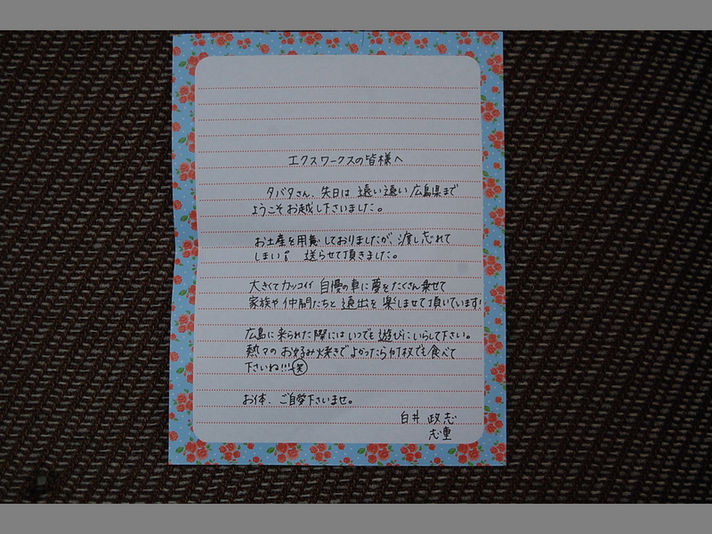 エクスワークスの皆様へ
タバタさん、先日は 遠い遠い 広島県まで
ようこそ お越し下さいました。
お土産を用意しておりましたが、渡し忘れて
しまい 送らせて頂きました。
大きくてカッコイイ 自慢の車に夢をたくさん乗せて
家族や仲間たちと 遠出を 楽しませて頂いています!
広島に来られた際には いつでも 遊びにいらして下さい。
熱々の お好み焼きで よかったら 何枚でも 食べて
下さいね!!!笑
お体、ご自愛下さいませ。
白井 政志
志重